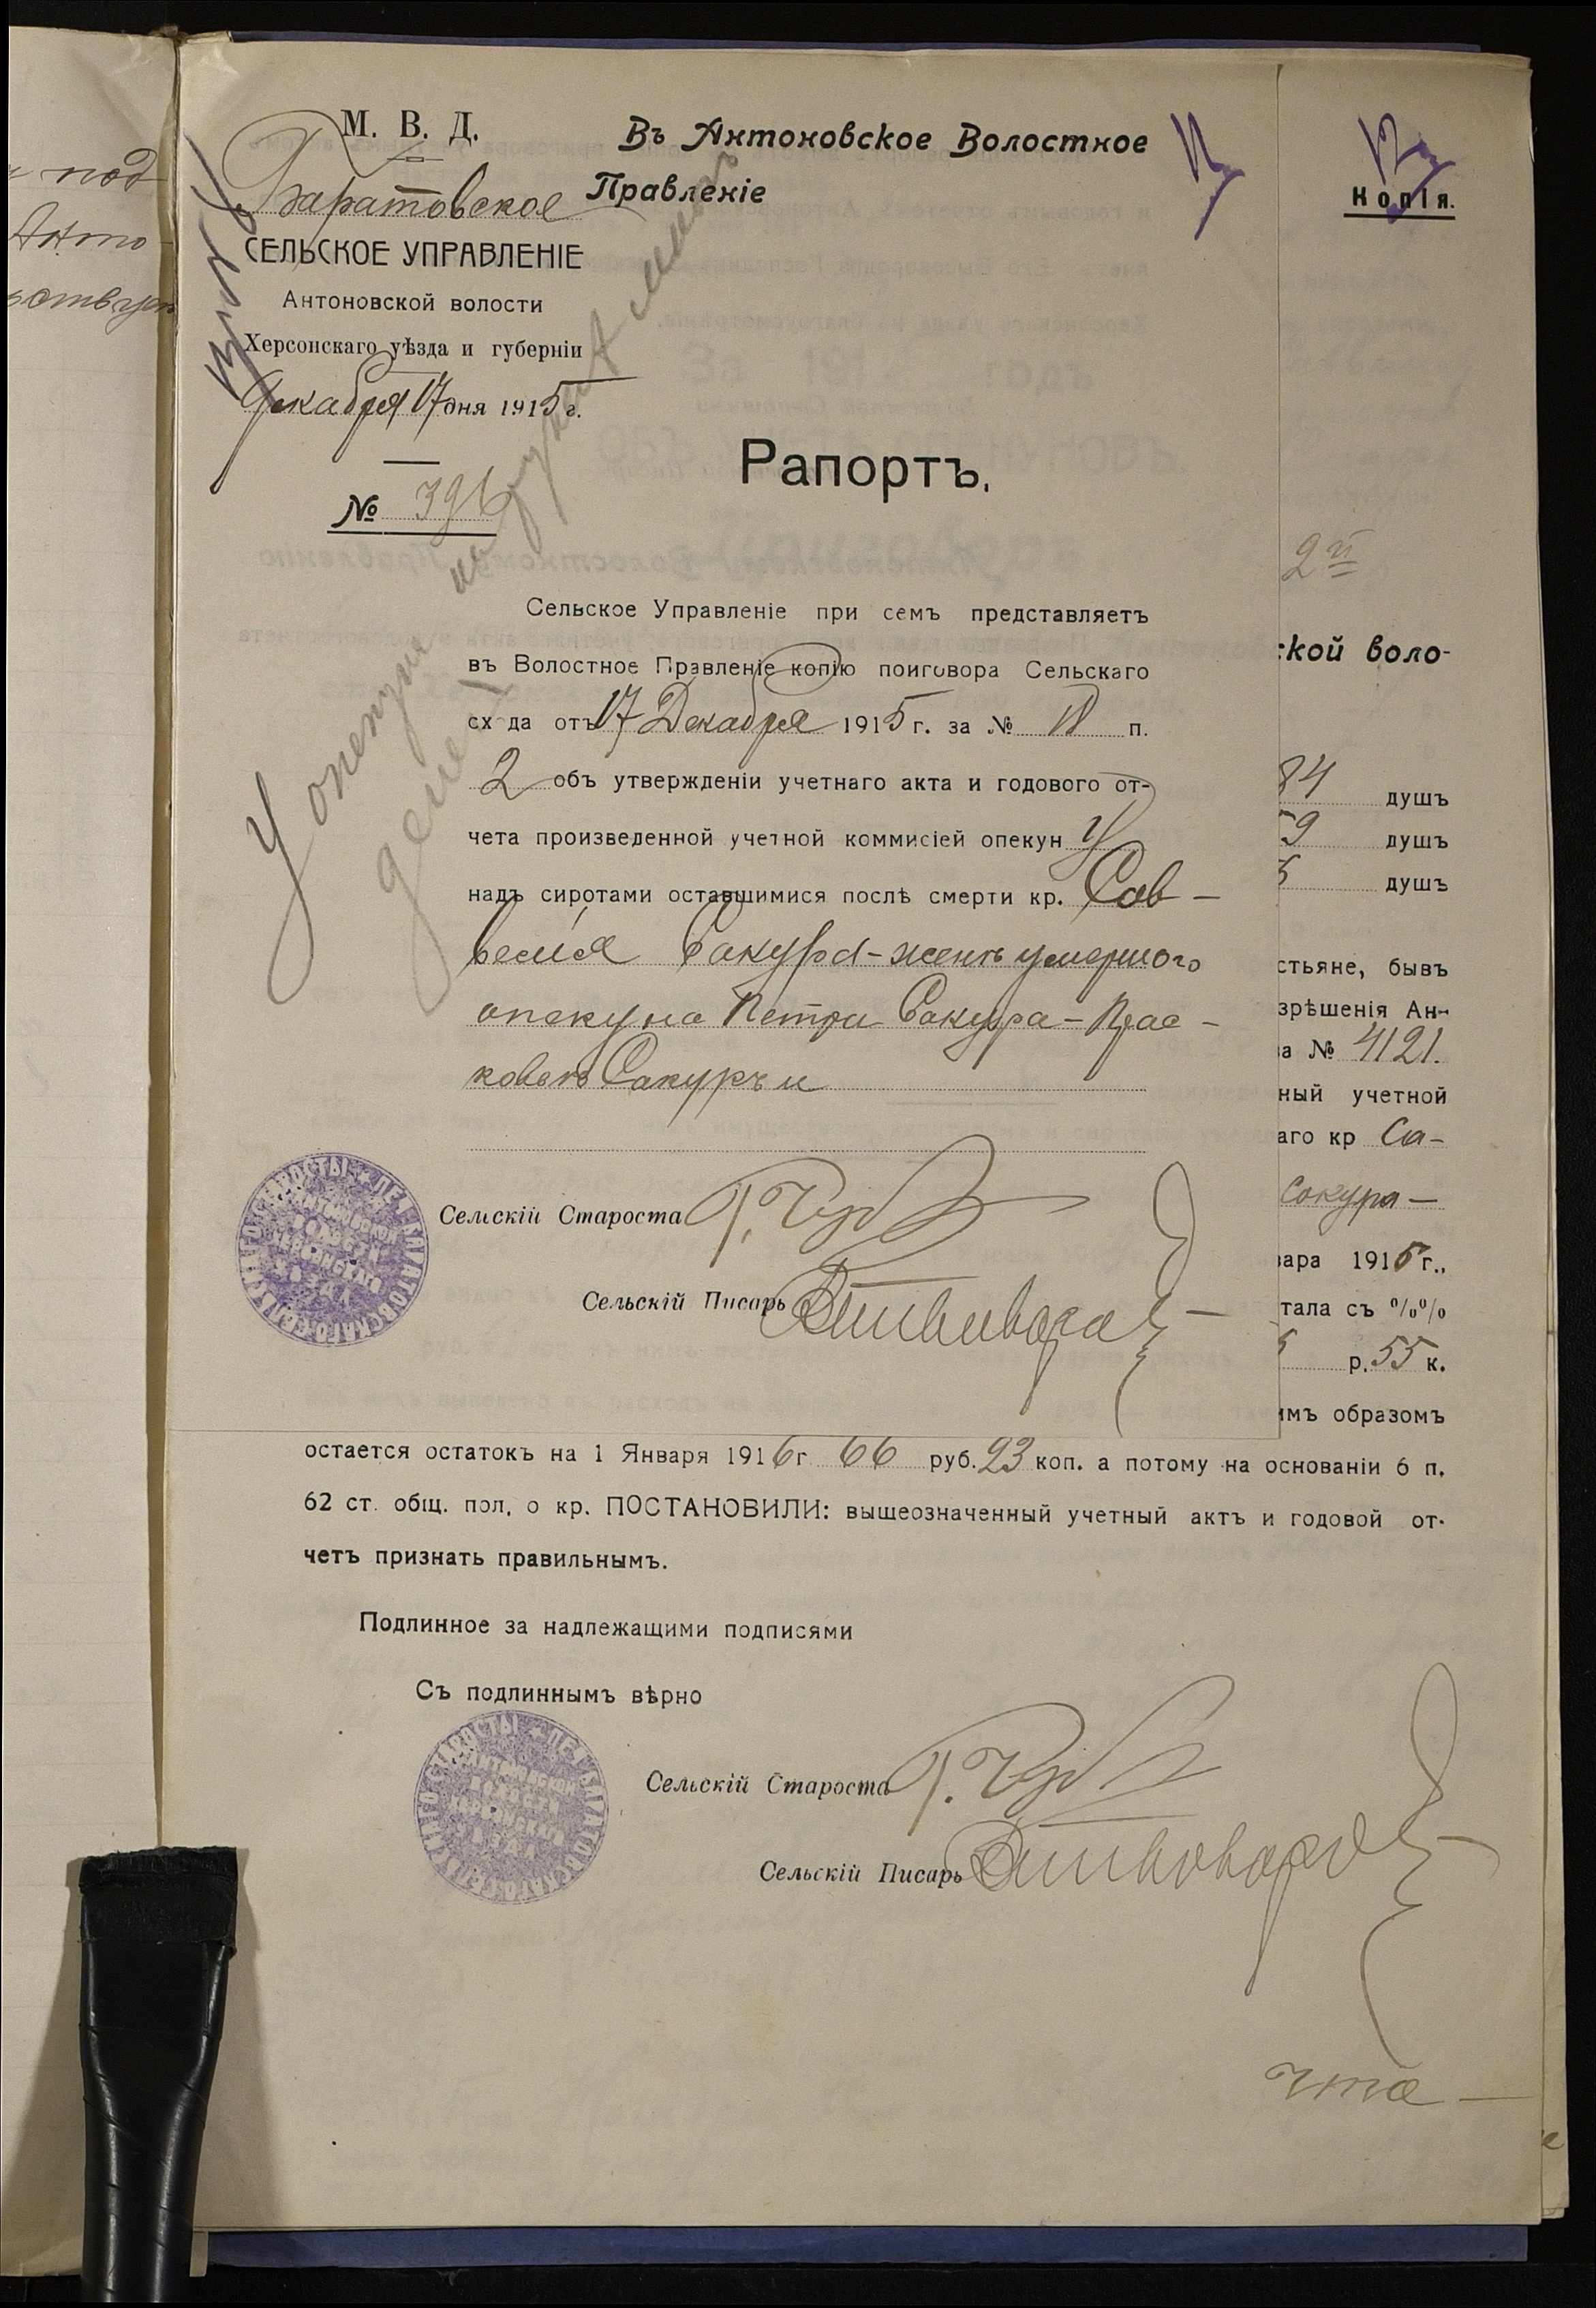 под
Анто-
М. В. Д.
Баратовское
СЕЛЬСКОЕ УПРАВЛЕНІЕ
Антоновской волости
Херсонскаго уѣзда и губерніи
Декабря 17 дня 1915 г.
№ 396
Въ Антоновское Волостное
Правленіе
Рапортъ.
У опекуна на руках
денег
Сельское Управленіе при семъ представляетъ
въ Волостное Правленіе копію поиговора Сельскаго
сх да отъ 17 Декабря 1915 г. за № 18 п.
2 объ утвержденіи учетнаго акта и годового от-
чета произведенной учетной коммисіей опекун у
надъ сиротами оставшимися послѣ смерти кр. Сав-
велія Сакура - женѣ умершого
опекуна Петра Сакура - Прас-
ковьѣ Сакурѣ и
Сельскій Староста
Сельскій Писарь
Копія.
2й
ской воло-
84 душъ
59 душъ
5 душъ
стьяне, бывъ
зрѣшенія Ан-
за № 4121.
ный учетной
аго кр Са-
Сокура —
вара 1915 г.,
тала съ %%
р. 55 к.
имъ образомъ
остается остатокъ на 1 Января 1916 г 66 руб. 23 коп. а потому на основаніи 6 п.
62 ст. общ. пол, о кр. ПОСТАНОВИЛИ: вышеозначенный учетный актъ и годовой от-
четъ признать правильнымъ.
Подлинное за надлежащими подписями
Съ подлиннымъ вѣрно
Сельскій Староста
Сельскій Писарь
что